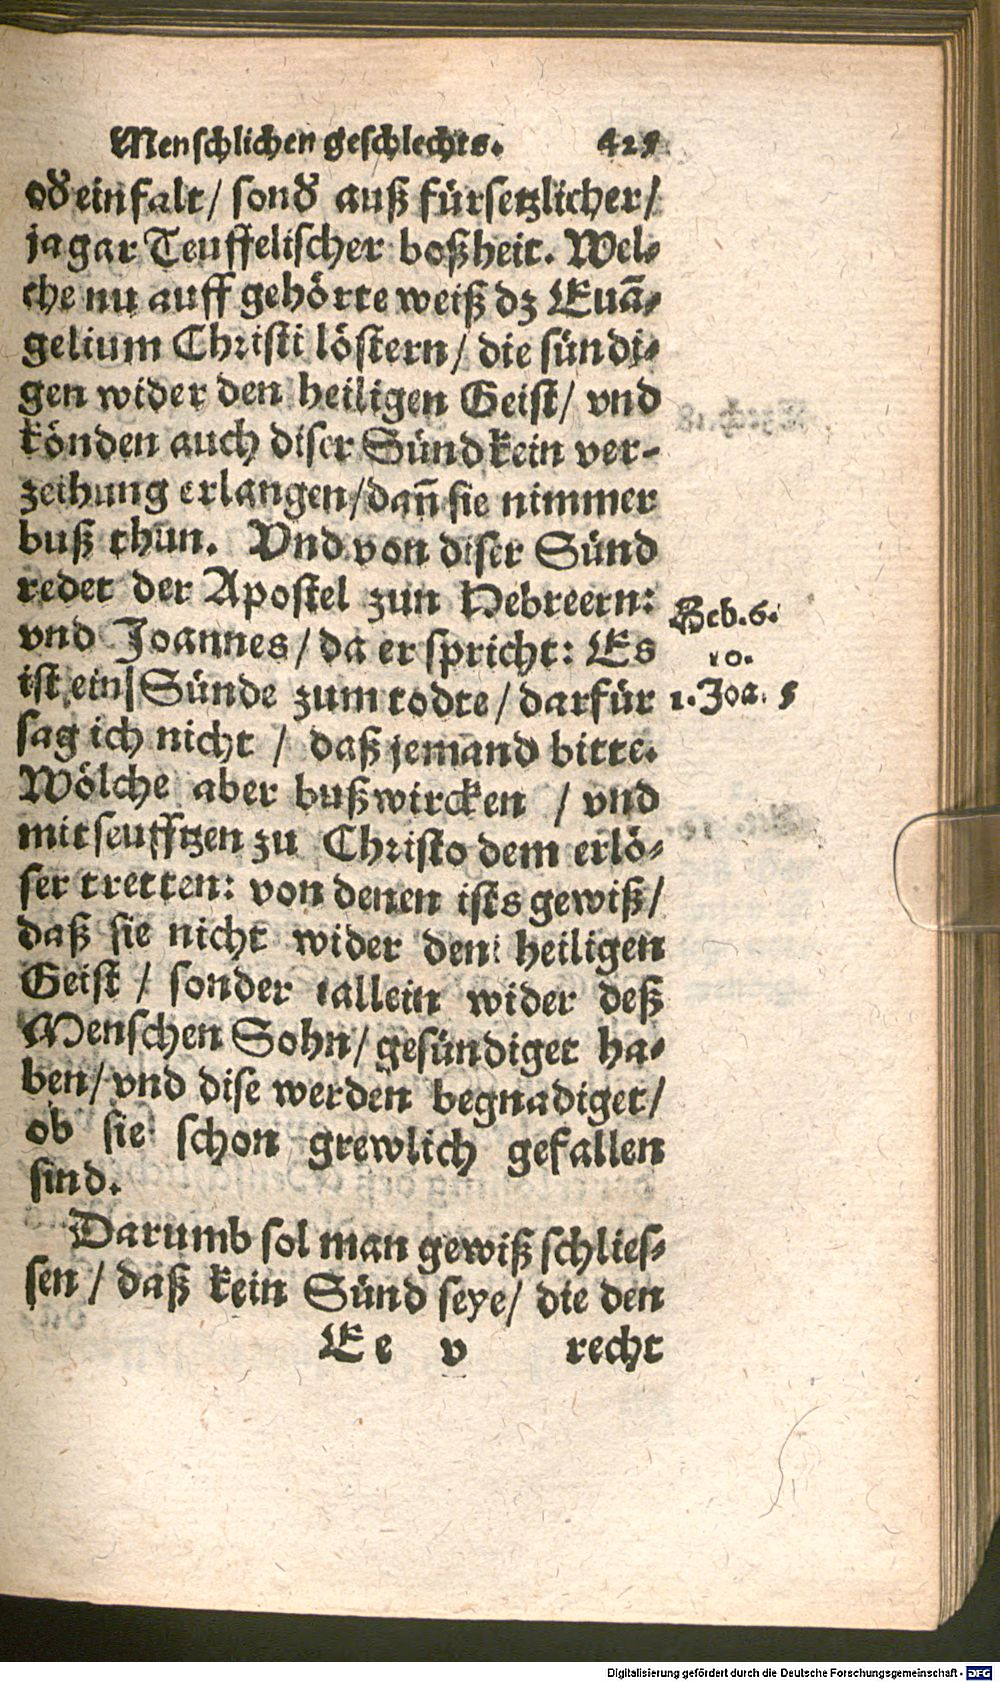 Menschlichen geschlechts. 425
oď einfalt / sonď auß fürsetzlicher /
ja gar Teuffelischer boßheit. Wel-
che nu auff gehörte weiß dz Euā-
gelium Christi löstern / die sündi-
gen wider den heiligen Geist / vnd
könden auch diser Sünd kein ver-
zeihung erlangen / dañ sie nimmer
buß thun. Vnd von diser Sünd
redet der Apostel zun Hebreern:
vnd Joannes / da er spricht: Es
ist ein Sünde zum todte / darfür
sag ich nicht / daß jemand bitte.
Wölche aber buß wircken / vnd
mit seufftzen zu Christo dem erlö-
ser tretten: von denen ists gewiß /
daß sie nicht wider den heiligen
Geist / sonder allein wider deß
Menschen Sohn / gesündiget ha-
ben / vnd dise werden begnadiget /
ob sie schon grewlich gefallen
sind.
Darumb sol man gewiß schlies-
sen / daß kein Sünd seye / die den
Ee v recht
Heb. 6.
10.
1. Joa. 5
Digitalisierung gefördert durch die Deutsche Forschungsgemeinschaft - DFG